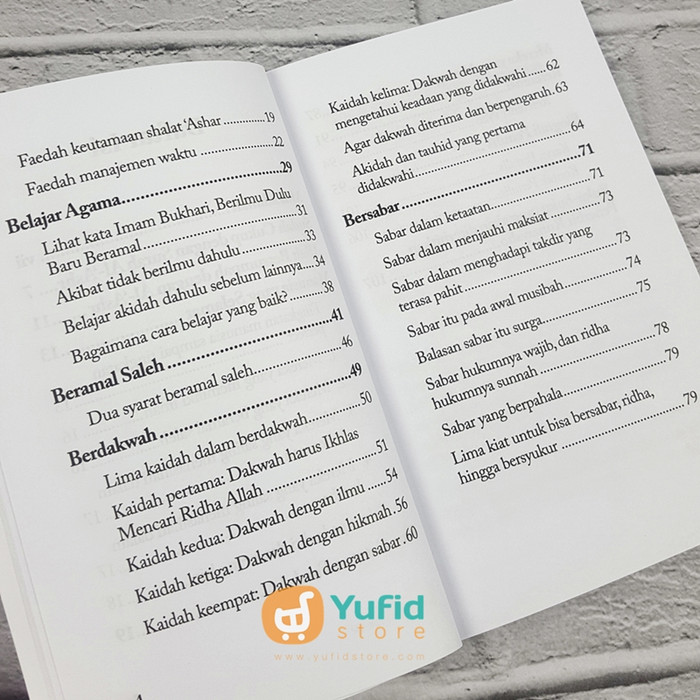 Faedah keutamaan shalat ‘Ashar............19
Faedah manajemen waktu ..................22
Belajar Agama....................................29
Lihat kata Imam Bukhari, Berilmu Dulu
Baru Beramal....................................31
Akibat tidak berilmu dahulu ...............33
Belajar akidah dahulu sebelum lainnya...34
Bagaimana cara belajar yang baik?........38
Beramal Saleh ....................................41
Dua syarat beramal saleh......................46
Berdakwah..........................................49
Lima kaidah dalam berdakwah.............50
Kaidah pertama: Dakwah harus Ikhlas
Mencari Ridha Allah ..........................51
Kaidah kedua: Dakwah dengan ilmu .....54
Kaidah ketiga: Dakwah dengan hikmah .56
Kaidah keempat: Dakwah dengan sabar .60
Kaidah kelima: Dakwah dengan
mengetahui keadaan yang didakwahi......62
Agar dakwah diterima dan berpengaruh .63
Akidah dan tauhid yang pertama
didakwahi ..........................................64
Bersabar.............................................71
Sabar dalam ketaatan...........................71
Sabar dalam menjauhi maksiat .............73
Sabar dalam menghadapi takdir yang
terasa pahit ........................................73
Sabar itu pada awal musibah................74
Balasan sabar itu surga.........................75
Sabar hukumnya wajib, dan ridha
hukumnya sunnah ..............................78
Sabar yang berpahala...........................79
Lima kiat untuk bisa bersabar, ridha,
hingga bersyukur ................................79
Yufid
store
www.yufidstore.com